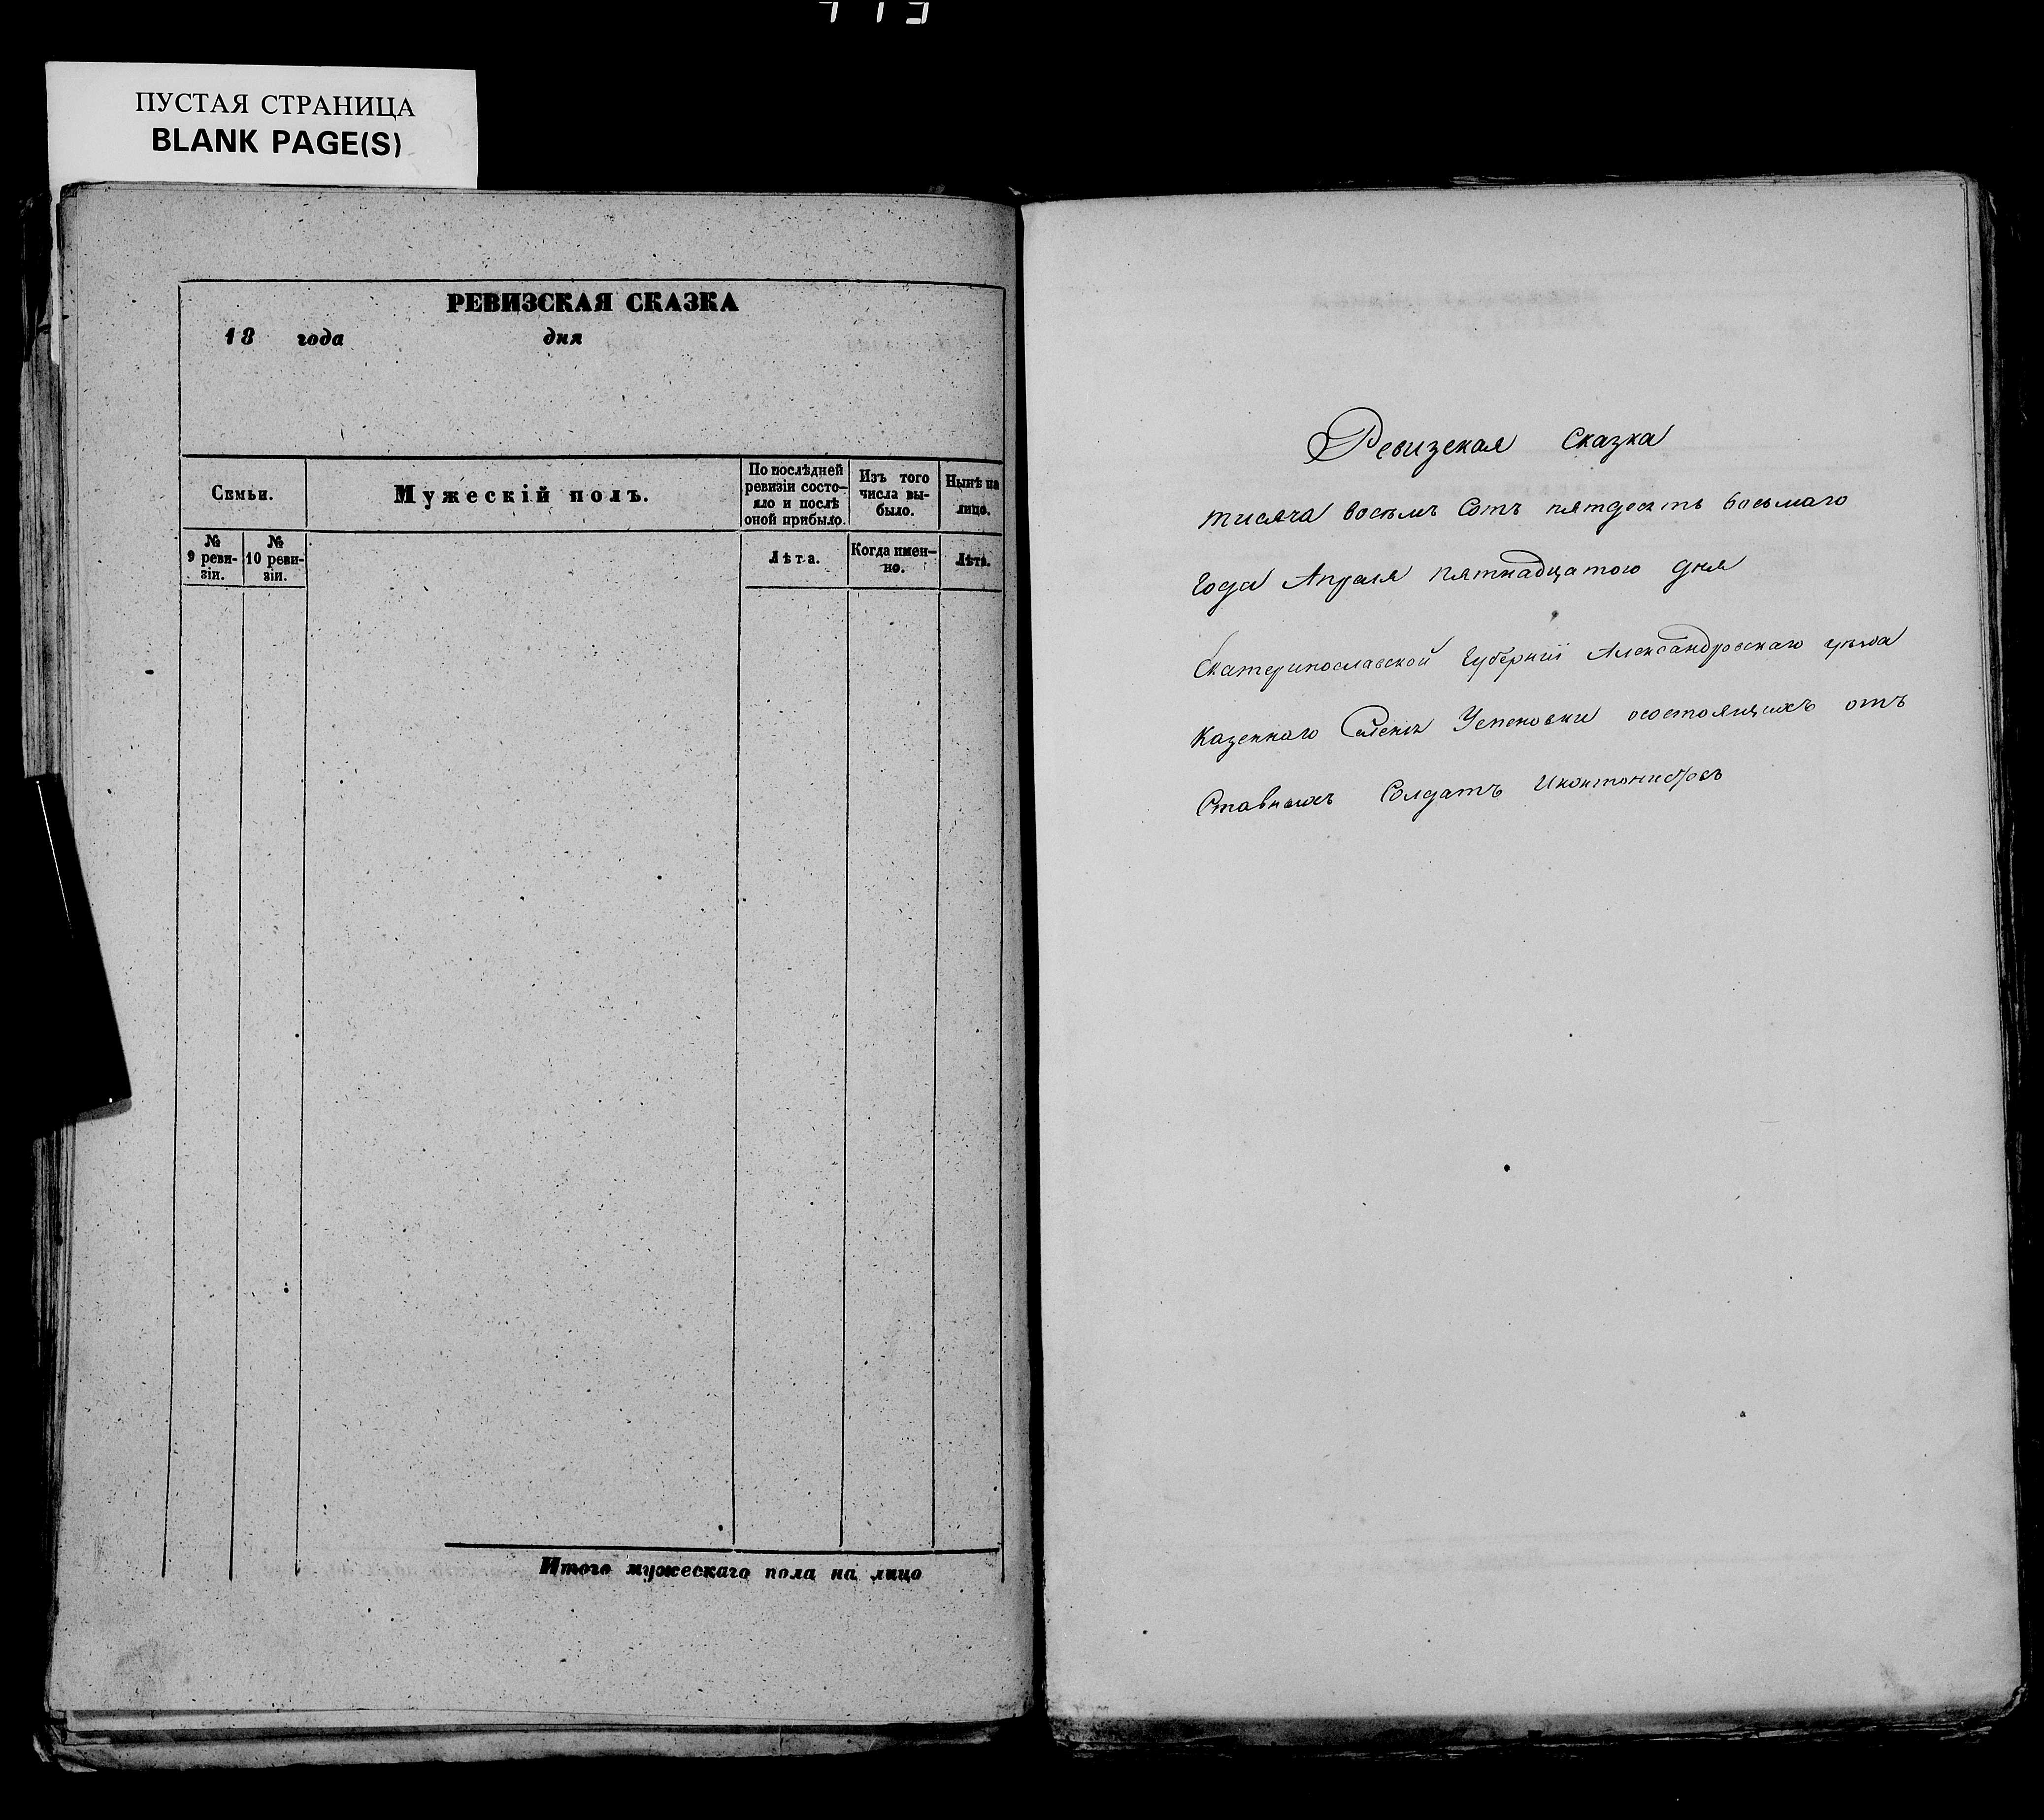 ПУСТАЯ СТРАНИЦА
BLANK PAGE(S)
РЕВИЗСКАЯ СКАЗКА
18 года дня
Семьи.
Мужескій полъ.
По послѣдней
ревизіи состо-
яло и послѣ
оной прибыло.
Изъ того
числа вы-
было.
Нынѣ на
лицо.
№
9 реви-
зіи.
№
10 реви-
зіи.
Лѣта.
Когда имен-
но.
Лѣта.
Итого мужескаго пола на лицо
Ревизская Сказка
тисяча восемъ Сотъ пятдесятъ восьмаго
Года Апреля пятнадцатого дня
Екатеринославской Губерніи Александровскаго уѣзда
Казеннаго Селенія Успеновки осостоящихъ отъ
Ставныхъ Солдатъ Икантонистовъ